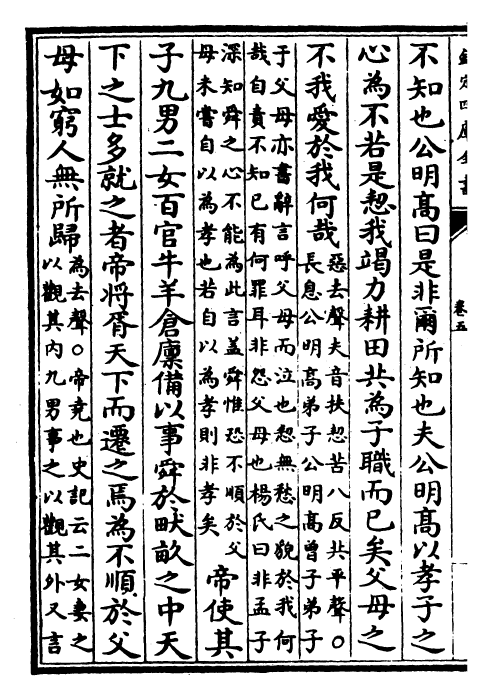 欽定四庫全書
卷五
不知也公明髙曰是非爾所知也夫公明髙以孝子之
心為不若是恝我竭力耕田共為子職而已矣父母之
不我愛於我何哉
惡去聲夫音扶恝苦八反共平聲○
長息公明髙弟子公明髙曾子弟子
于父母亦書辭言呼父母而泣也恝無愁之貌於我何
哉自責不知己有何罪耳非怨父母也楊氏曰非孟子
深知舜之心不能為此言盖舜惟恐不順於父
母未嘗自以為孝也若自以為孝則非孝矣
帝使其
子九男二女百官牛羊倉廩備以事舜於畎畝之中天
下之士多就之者帝將胥天下而遷之焉為不順於父
母如窮人無所歸
為去聲○帝堯也史記云二女妻之
以觀其内九男事之以觀其外又言